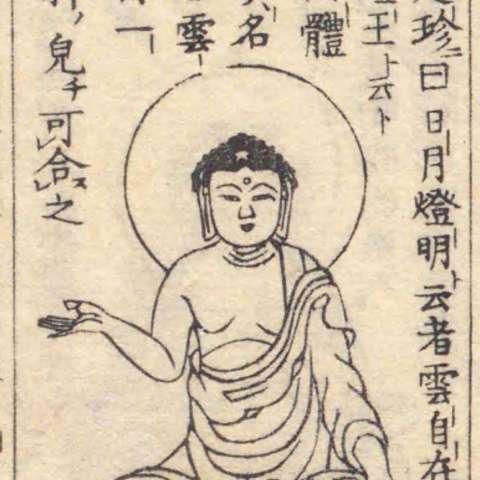 珍曰日月燈明云者雲自在
王ト云ト
體
名
雲
一
兒チ可合ス之